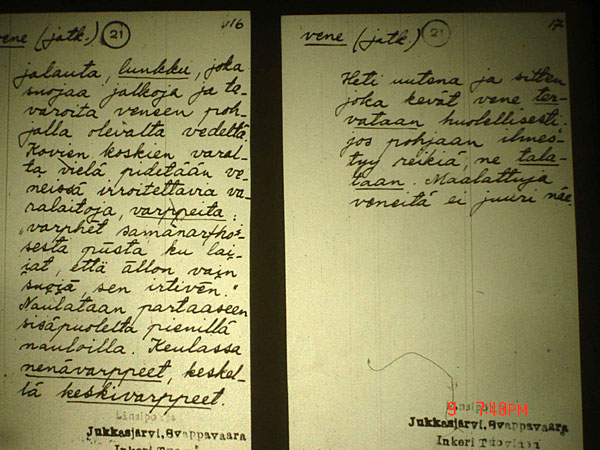 vene (jatk.) 21 16
jalauta, lunkku, joka
suojaa jalkoja ja ta-
varoita veneen poh-
jalla olevalta vedeltä.
Kovien koskien varal-
ta vielä pidetään ve-
neissä irroitettavia va-
ralaitoja, varppeita:
"varphet samänarfhoi-
sesta pusta ku lai-
jat, että ällon vain
suojä, sen irtivên."
Naulataan partaaseen
sisäpuolelta pienillä
nauloilla. Keulassa
nenävarppeet, keskel-
lä keskivarppeet.
Länsipohja
Jukkasjärvi, Svappavaara
Inkeri
vene (jatk.) 21 17
Heti uutena ja sitten
joka kevät vene ter-
vataan huolellisesti.
jos pohjaan ilmes-
tyy reikiä, ne tala-
taan. Maalattuja
veneitä ei juuri näe.
Länsipohja
Jukkasjärvi, Svappavaara
Inkeri Tuovinen